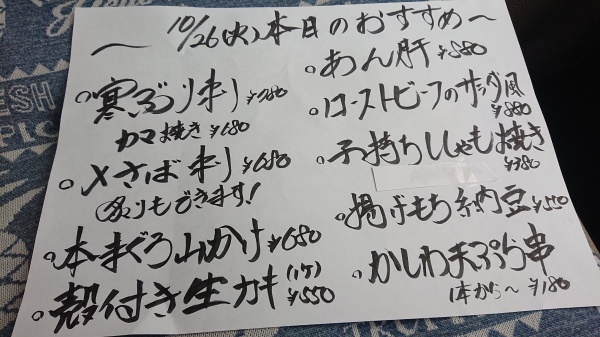 〜 10/26(火)本日のおすすめ〜
○寒ぶり刺し ¥780
カマ焼き ¥680
○〆さば刺し ¥680
炙りもできます!
○本まぐろ山かけ ¥680
○殻付き生カキ(1ケ) ¥550
○あん肝 ¥580
○ローストビーフのサラダ風 ¥880
○子持ちししゃも焼き ¥780
○揚げもち納豆 ¥550
○かしわ天ぷら串
1本から〜 ¥180